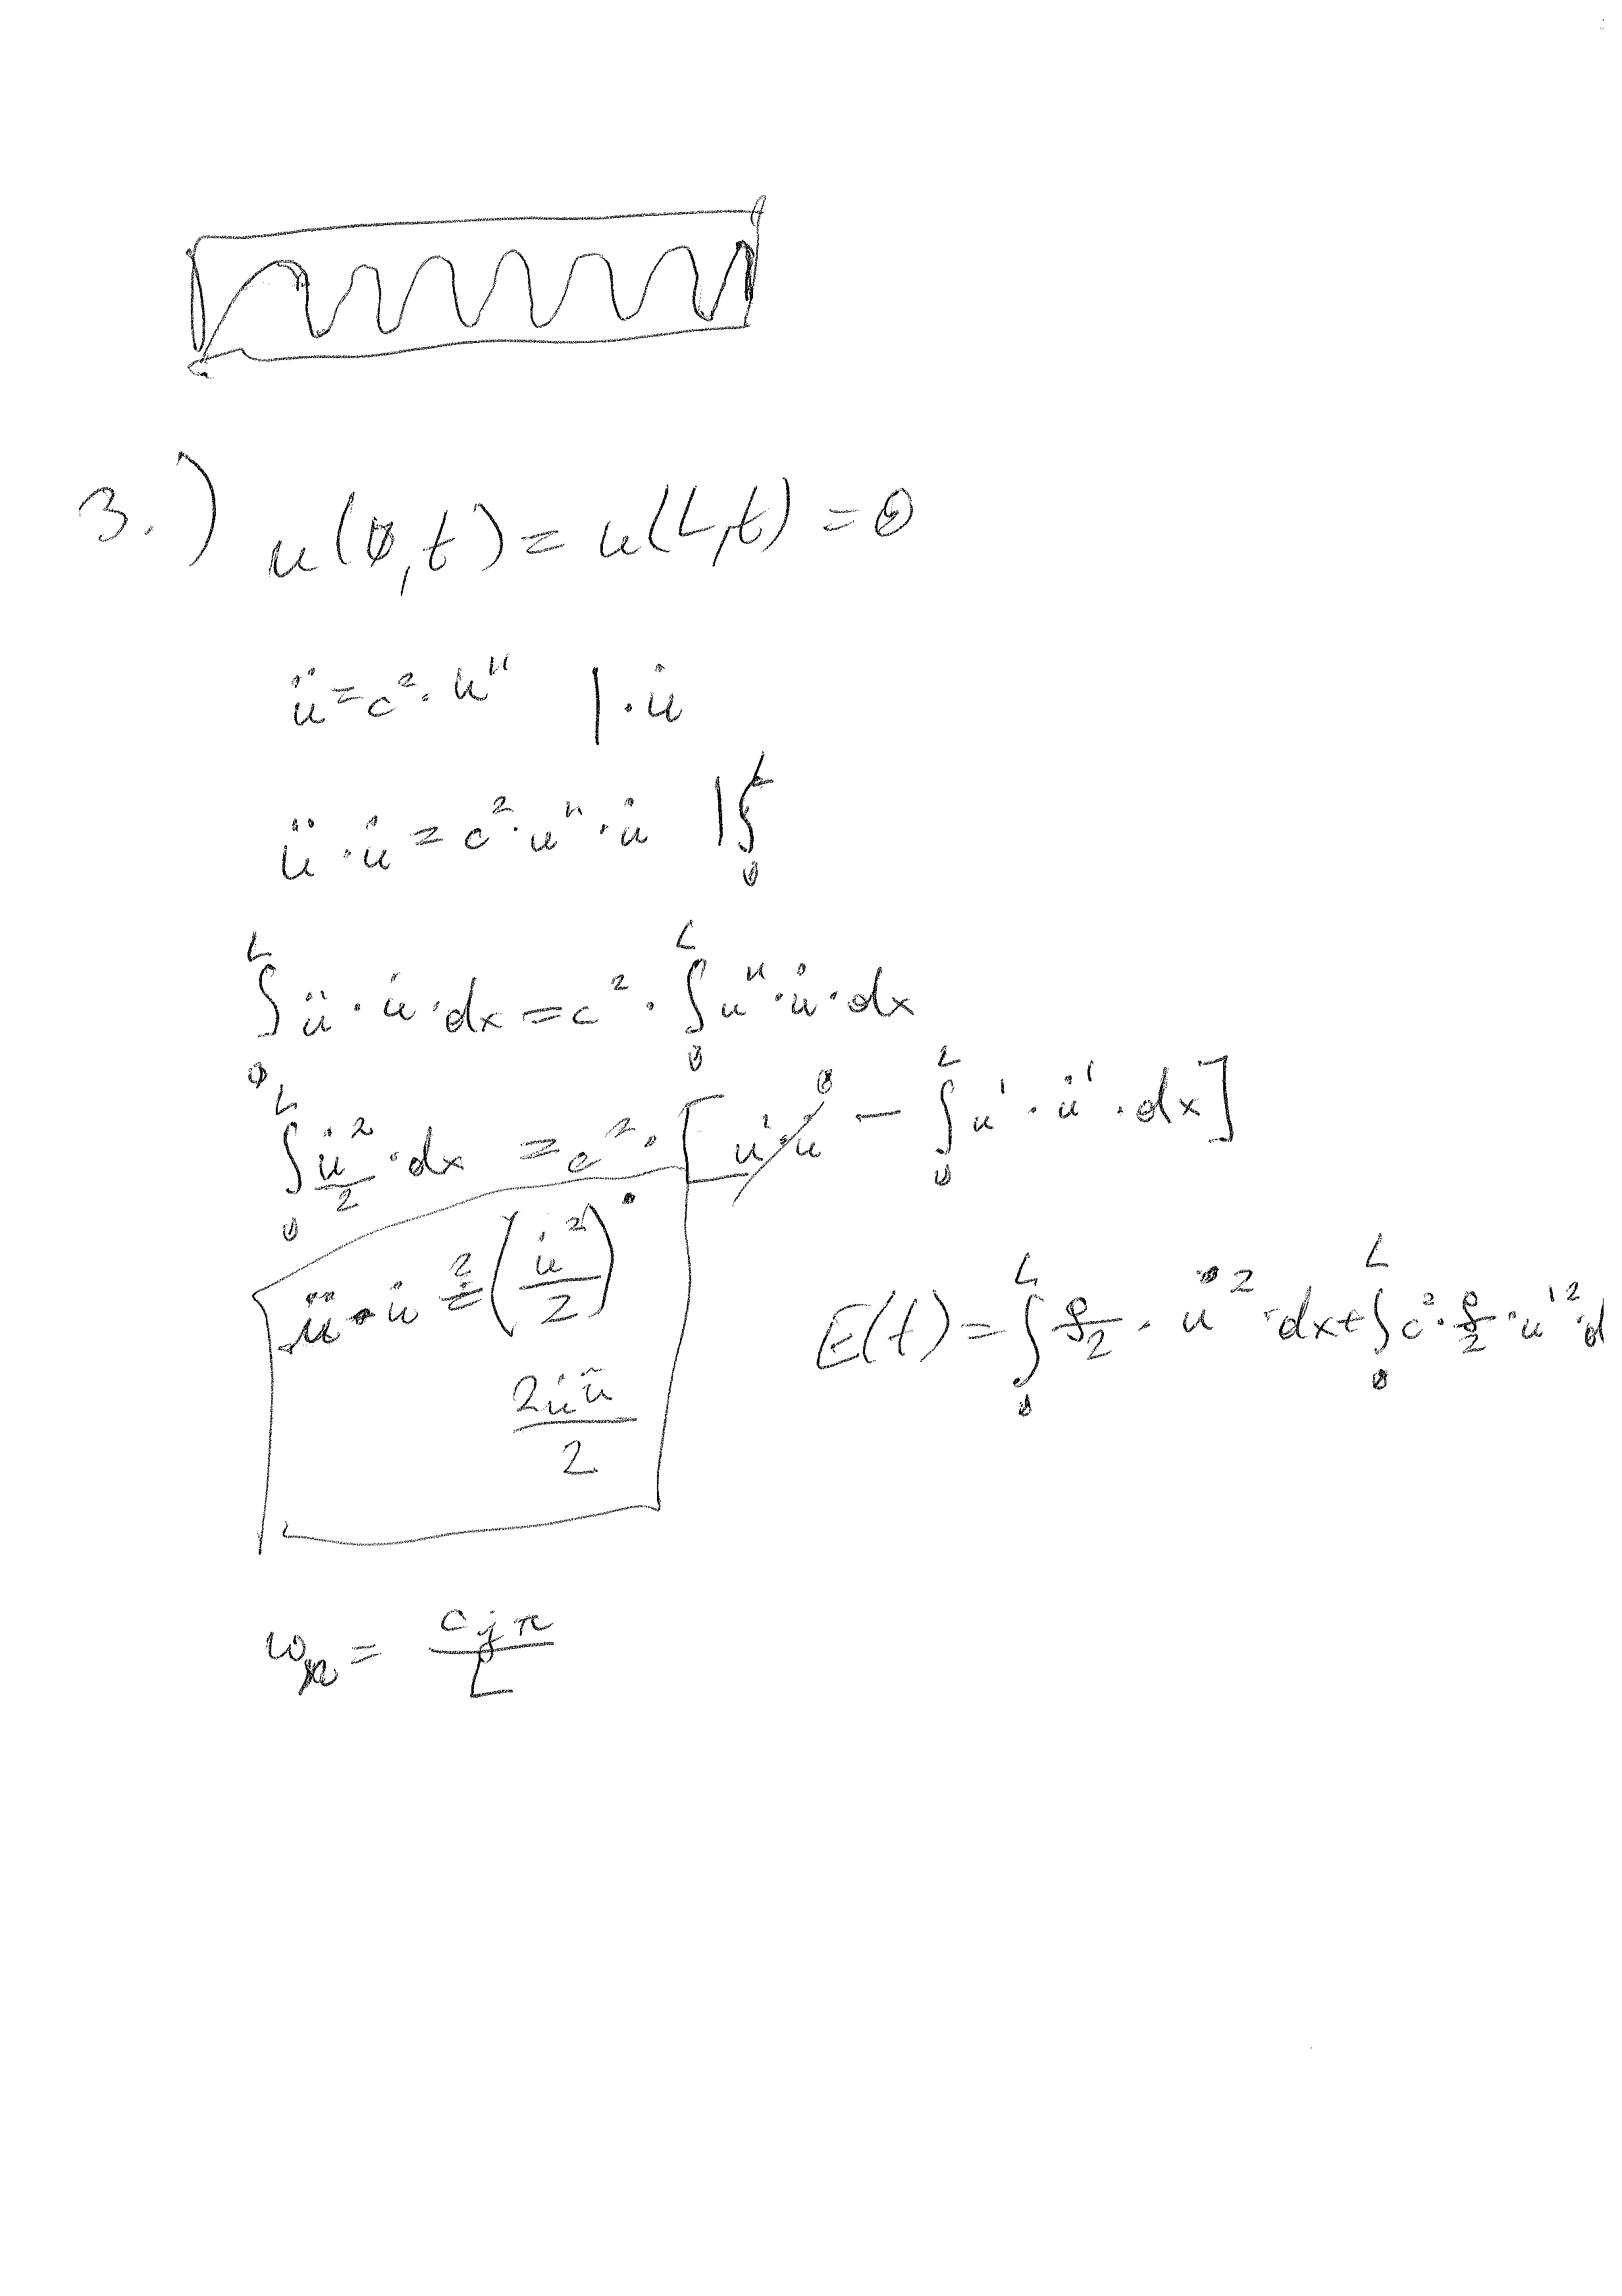 3.) u(0,t) = u(L,t) = 0
ü = c² · u'' | · u̇
ü · u̇ = c² · u'' · u̇ | ∫₀ᴸ
∫₀ᴸ ü · u̇ · dx = c² · ∫₀ᴸ u'' · u̇ · dx
∫₀ᴸ u̇²/2 · dx = c² · [u' · u̇ 0 − ∫₀ᴸ u' · u̇' · dx]
ü · u̇ ≟ (u̇²/2)˙
2u̇ü/2
E(t) = ∫₀ᴸ ρ/2 · u̇² · dx + ∫₀ᴸ c² · ρ/2 · u'² · d
ω = cjπ/L